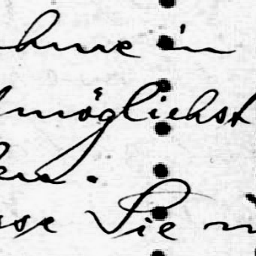 ohne in
möglichst
en.
sse Sie